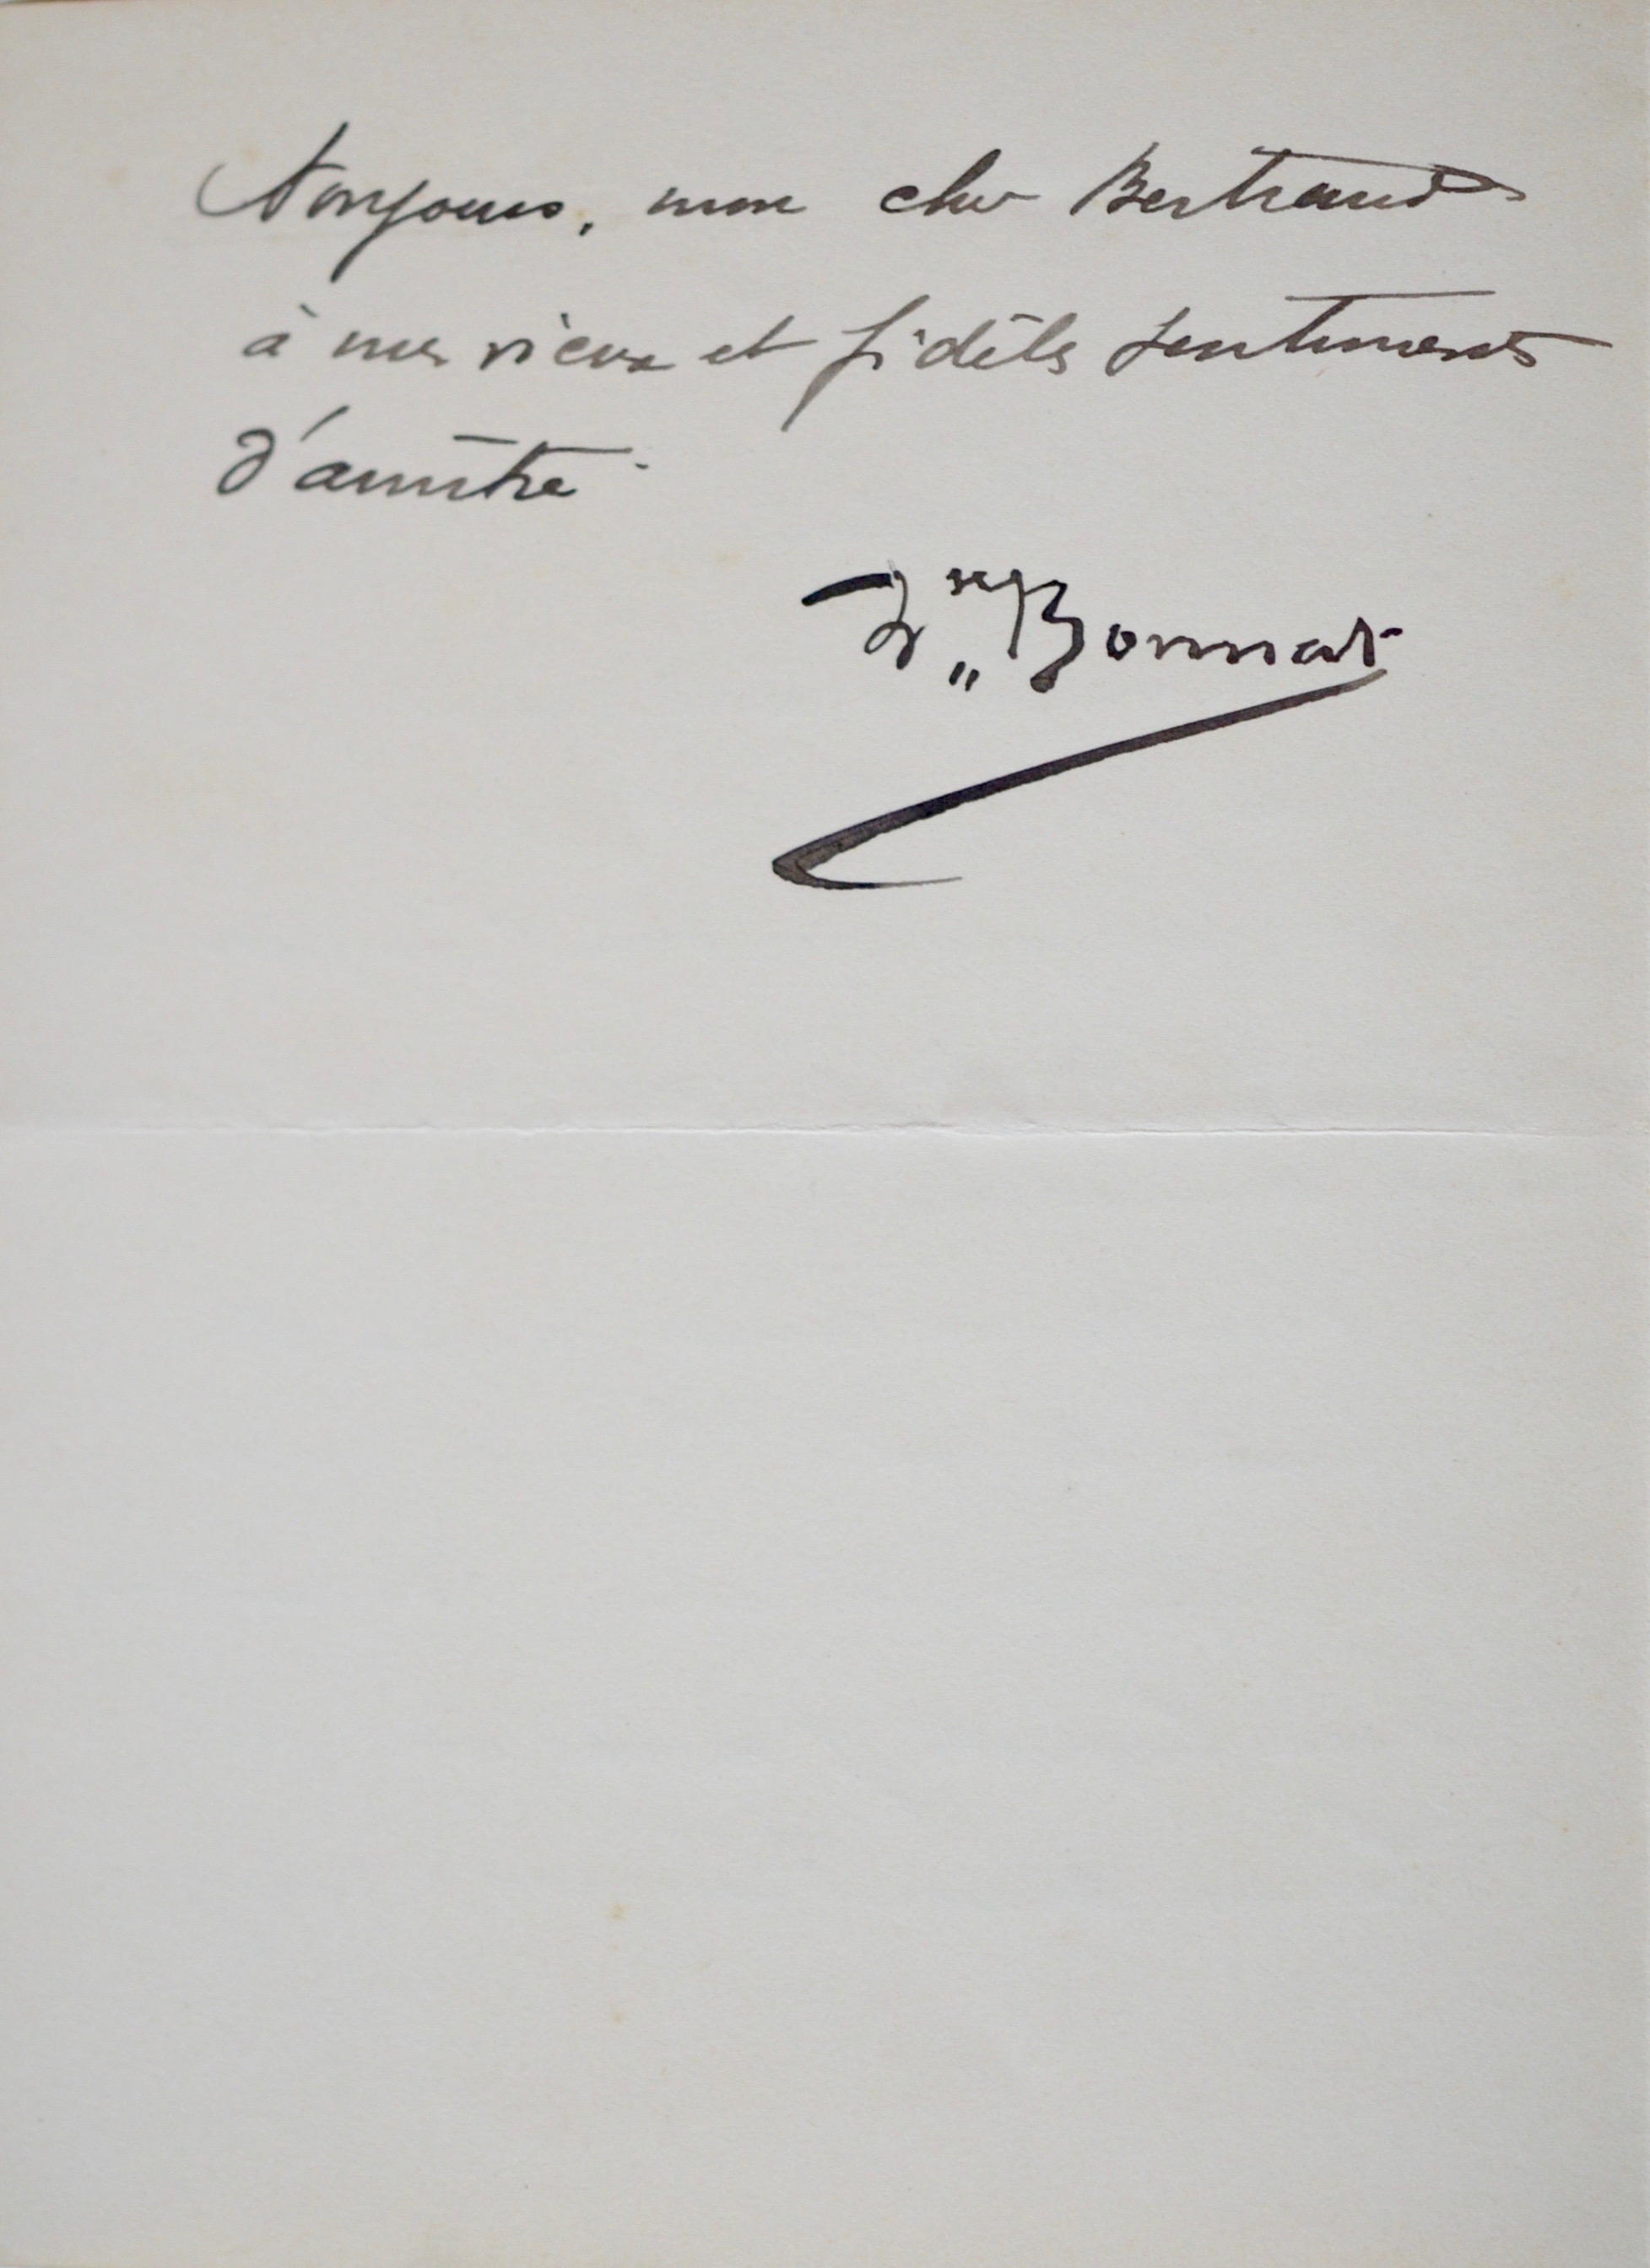 toujours, mon cher Bertrand
à mes vieux et fidèles sentiments
d'amitié.
Lⁿ Bonnat